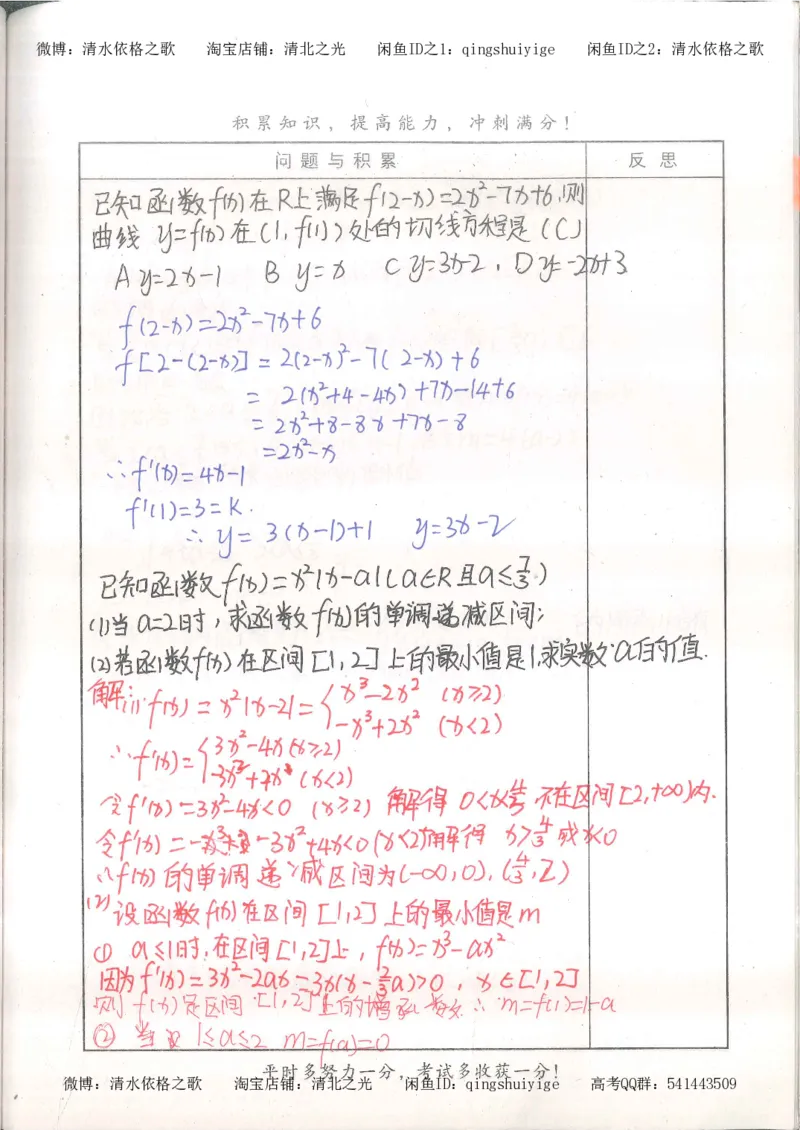 微博：清水依格之歌 淘宝店铺：清北之光 闲鱼ID之1：qingshuiyige 闲鱼ID之2：清水依格之歌
积累知识，提高能力，冲刺满分！
问题与积累 反思
已知函数f(x)在R上满足f(2-x)=2x²-7x+6,则
曲线 y=f(x)在(1,f(1))处的切线方程是(C)
A y=2x-1 B y=x C y=3x-2 . D y=-2x+3
f(2-x)=2x²-7x+6
f[2-(2-x)]=2(2-x)²-7(2-x)+6
=2(x²+4-4x)+7x-14+6
=2x²+8-8x+7x-8
=2x²-x
∴f'(x)=4x-1
f'(1)=3=k.
∴y=3(x-1)+1 y=3x-2
已知函数f(x)=x²|x-a|(a∈R且a≤7/3.)
(1)当a=2时，求函数f(x)的单调递减区间;
(2)若函数f(x)在区间[1,2]上的最小值是1,求实数a的值.
解:(1)f(x)=x²|x-2|={x³-2x² (x≥2)
-x³+2x² (x<2)
∴f'(x)={3x²-4x(x≥2)
-3x²+4x (x<2)
令f'(x)=3x²-4x<0 (x≥2) 解得 0<x<4/3 不在区间[2,+∞)内.
令f'(x)=-3x²+4x<0(x<2)解得 x>4/3 或x<0
∴f(x)的单调递减区间为(-∞,0),(4/3,2)
(2)设函数f(x)在区间[1,2]上的最小值是m
① a≤1时,在区间[1,2]上，f(x)=x³-ax²
因为f'(x)=3x²-2ax=3x(x-2/3a)>0，x∈[1,2]
则f(x)是区间[1,2]上的增函数∴m=f(1)=1-a
② 当 1≤a≤2 m=f(a)=0
平时多努力一分，考试多收获一分！
微博：清水依格之歌 淘宝店铺：清北之光 闲鱼ID：qingshuiyige 高考QQ群：541443509